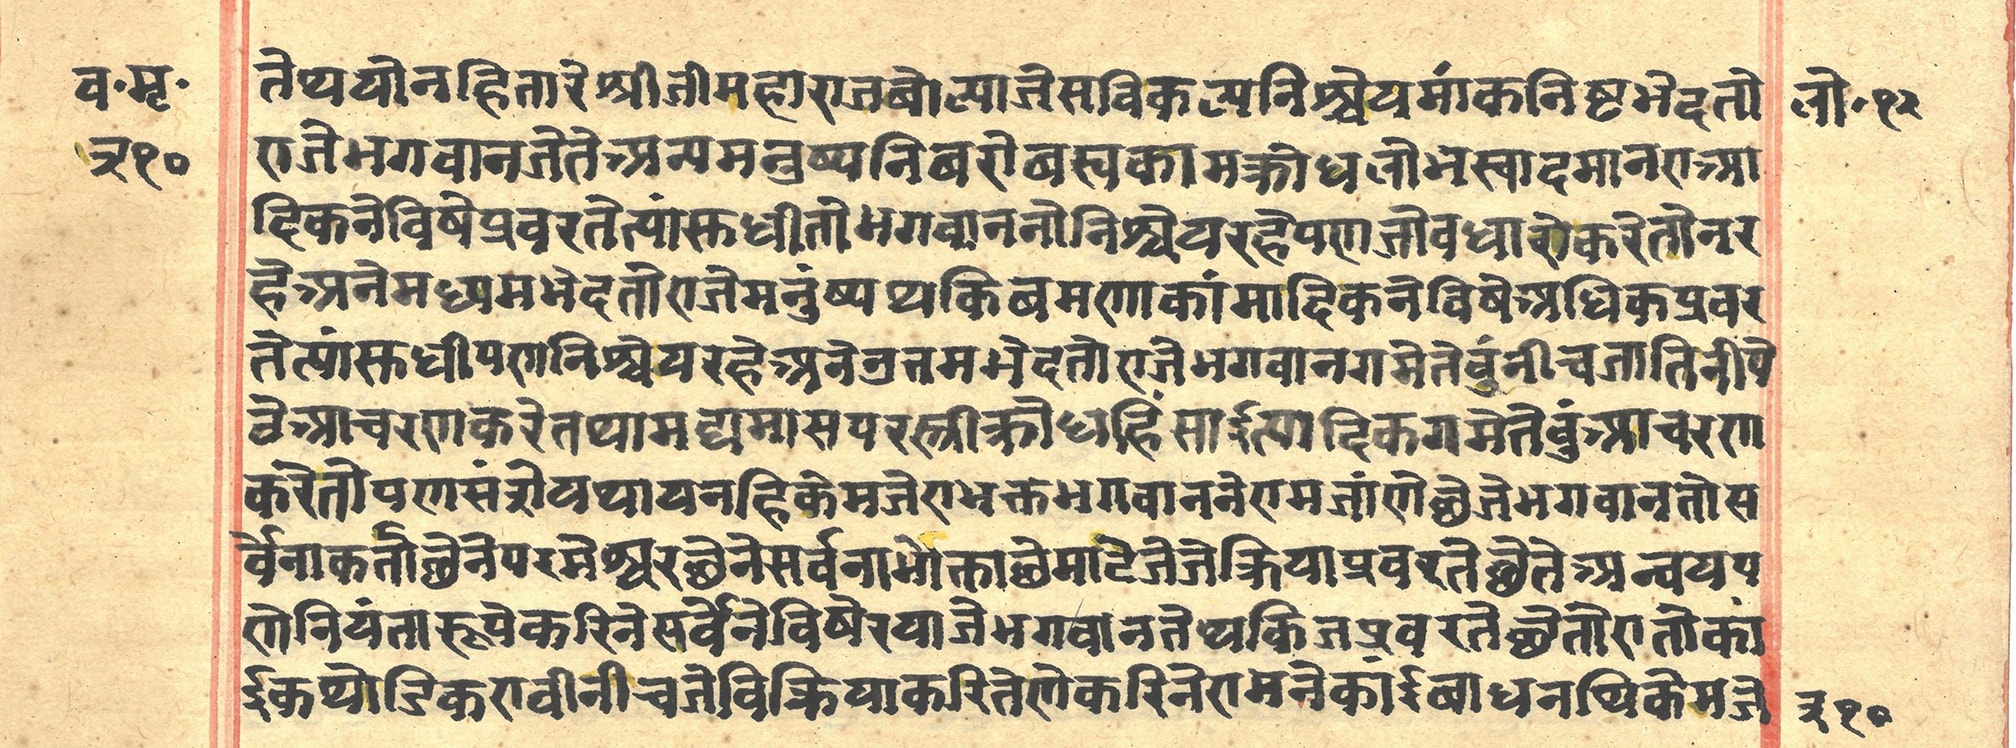 व·मृ· तेथयोनहितारेश्रीजीमहाराजबोल्याजेसविकल्पनिश्चेयमांकनिष्टभेदतो लो·१२
२१० एजेभगवानजेतेअन्यमनुष्यनिबरोबस्यकामक्रोधलोभस्वादमानएआ
दिकनेविषेप्रवरतेत्यांसुधीतोभगवाननोनिश्चेयरहेपणजोवधारोकरेतोनर
हेअनेमध्यमभेदतोएजेमनुंष्यथकिबमणाकांमादिकनेविषेअधिकप्रवर
तेत्यांसुधीपणनिश्चेयरहेअनेउत्तमभेदतोएजेभगवानगमेतेवुंनीचजातिनीपे
वेआचरणकरेतथामद्यमासपरस्त्रीक्रोधहिंसाईत्यादिकगमेतेवुंआचरण
करेतोपणसंशेयथायनहिकेमजेएभक्तभगवाननेएमजांणेछेजेभगवानतोस
र्वेनाकर्ताछेनेपरमेश्वरछेनेसर्वनाभोक्ताछेमाटेजेजेक्रियाप्रवरतेछेतेअन्वयप
णेनियंतारूपेकरिनेसर्वेनेविषेरयाजेभगवानतेथकिजप्रवरतेछेतोएतोकां
ईकथोडिकएवीनीचजेविक्रियाकरितेणेकरिनेएमनेकांईबाधनथिकेमजे २१०